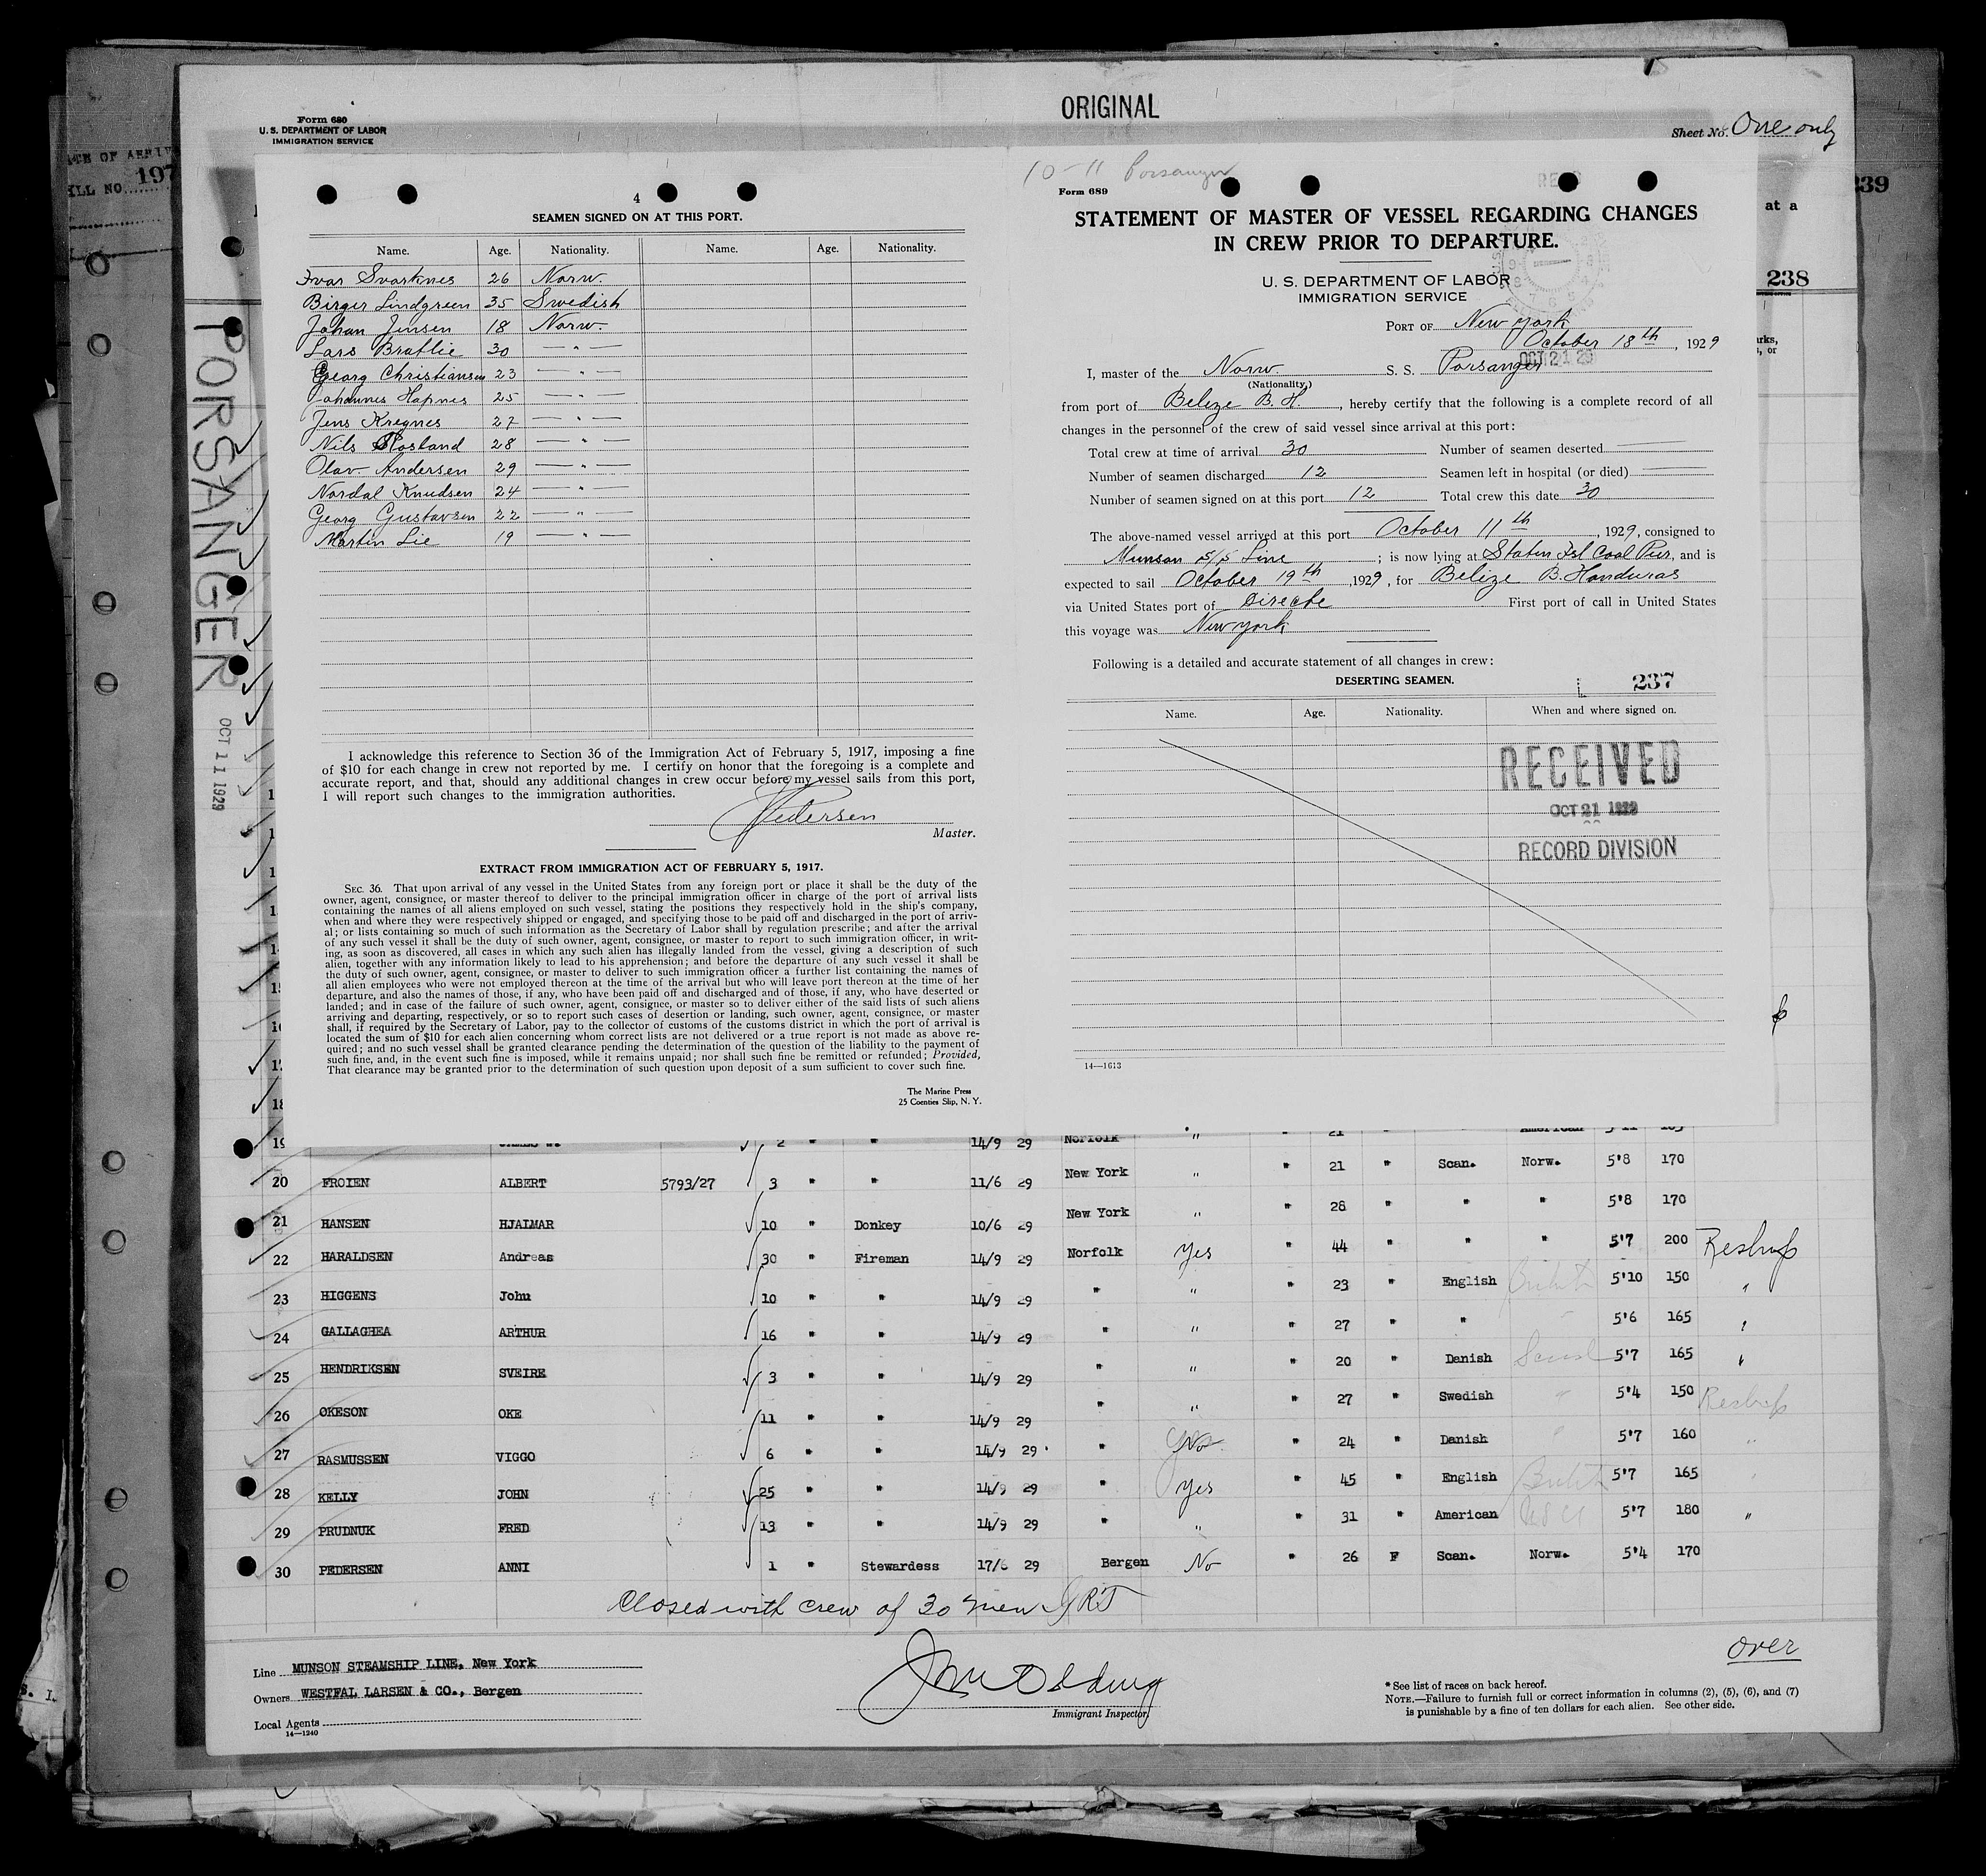 ORIGINAL
Form 680
U. S. DEPARTMENT OF LABOR
IMMIGRATION SERVICE
Sheet No. One only
197
239
at a
238
PORSANGER
OCT 11 1929
4
SEAMEN SIGNED ON AT THIS PORT.
Name. Age. Nationality. Name. Age. Nationality.
Ivar Svarknes 26 Norw.
Birger Lindgreen 35 Swedish
Johan Jensen 18 Norw.
Lars Bratlie 30 — " —
Georg Christiansen 23 — " —
Johannes Hapnes 25 — " —
Jens Kregnes 27 — " —
Nils Rosland 28 — " —
Olav Andersen 29 — " —
Nordal Knudsen 24 — " —
Georg Gustavsen 22 — " —
Martin Lie 19 — " —
I acknowledge this reference to Section 36 of the Immigration Act of February 5, 1917, imposing a fine
of $10 for each change in crew not reported by me. I certify on honor that the foregoing is a complete and
accurate report, and that, should any additional changes in crew occur before my vessel sails from this port,
I will report such changes to the immigration authorities.
Pedersen
Master.
EXTRACT FROM IMMIGRATION ACT OF FEBRUARY 5, 1917.
SEC. 36. That upon arrival of any vessel in the United States from any foreign port or place it shall be the duty of the
owner, agent, consignee, or master thereof to deliver to the principal immigration officer in charge of the port of arrival lists
containing the names of all aliens employed on such vessel, stating the positions they respectively hold in the ship's company,
when and where they were respectively shipped or engaged, and specifying those to be paid off and discharged in the port of arriv-
al; or lists containing so much of such information as the Secretary of Labor shall by regulation prescribe; and after the arrival
of any such vessel it shall be the duty of such owner, agent, consignee, or master to report to such immigration officer, in writ-
ing, as soon as discovered, all cases in which any such alien has illegally landed from the vessel, giving a description of such
alien, together with any information likely to lead to his apprehension; and before the departure of any such vessel it shall be
the duty of such owner, agent, consignee, or master to deliver to such immigration officer a further list containing the names of
all alien employees who were not employed thereon at the time of the arrival but who will leave port thereon at the time of her
departure, and also the names of those, if any, who have been paid off and discharged and of those, if any, who have deserted or
landed; and in case of the failure of such owner, agent, consignee, or master so to deliver either of the said lists of such aliens
arriving and departing, respectively, or so to report such cases of desertion or landing, such owner, agent, consignee, or master
shall, if required by the Secretary of Labor, pay to the collector of customs of the customs district in which the port of arrival is
located the sum of $10 for each alien concerning whom correct lists are not delivered or a true report is not made as above re-
quired; and no such vessel shall be granted clearance pending the determination of the question of the liability to the payment of
such fine, and, in the event such fine is imposed, while it remains unpaid; nor shall such fine be remitted or refunded; Provided,
That clearance may be granted prior to the determination of such question upon deposit of a sum sufficient to cover such fine.
The Marine Press
25 Coenties Slip, N. Y.
10-11 Porsanger
Form 689
STATEMENT OF MASTER OF VESSEL REGARDING CHANGES
IN CREW PRIOR TO DEPARTURE.
U. S. DEPARTMENT OF LABOR
IMMIGRATION SERVICE
PORT OF New York
October 18th, 1929
OCT 21 29
I, master of the Norw S. S. Porsanger
(Nationality.)
from port of Belize B. H., hereby certify that the following is a complete record of all
changes in the personnel of the crew of said vessel since arrival at this port:
Total crew at time of arrival 30 Number of seamen deserted
Number of seamen discharged 12 Seamen left in hospital (or died)
Number of seamen signed on at this port 12 Total crew this date 30
The above-named vessel arrived at this port October 11th, 1929, consigned to
Munson S/S Line; is now lying at Staten Isl Coal Pier, and is
expected to sail October 19th, 1929, for Belize B. Honduras
via United States port of Directe First port of call in United States
this voyage was New york
Following is a detailed and accurate statement of all changes in crew:
DESERTING SEAMEN.
237
Name. Age. Nationality. When and where signed on.
RECEIVED
OCT 21 1929
RECORD DIVISION
14—1613
19 JAMES W. 2 " " 14/9 29 Norfolk " 21 American 5'11
20 FROIEN ALBERT 5793/27 3 " " 11/6 29 New York " " 21 " Scan. Norw. 5'8 170
21 HANSEN HJALMAR 10 " Donkey 10/6 29 New York " " 28 " " " 5'8 170
22 HARALDSEN Andreas 30 " Fireman 14/9 29 Norfolk Yes " 44 " " " 5'7 200 Reship
23 HIGGENS John 10 " " 14/9 29 " " " 23 " English British 5'10 150 "
24 GALLAGHEA ARTHUR 16 " " 14/9 29 " " " 27 " " " 5'6 165 "
25 HENDRIKSEN SVEIRE 3 " " 14/9 29 " " " 20 " Danish Scand 5'7 165 "
26 OKESON OKE 11 " " 14/9 29 " " " 27 " Swedish " 5'4 150 Reship
27 RASMUSSEN VIGGO 6 " " 14/9 29 " No " 24 " Danish " 5'7 160 "
28 KELLY JOHN 25 " " 14/9 29 " Yes " 45 " English British 5'7 165 "
29 PRUDNUK FRED 13 " " 14/9 29 " " " 31 " American 5'7 180 "
30 PEDERSEN ANNI 1 " Stewardess 17/6 29 Bergen No " 26 F Scan. Norw. 5'4 170
Closed with crew of 30 men GRT
over
Line MUNSON STEAMSHIP LINE, New York
Owners WESTFAL LARSEN & CO., Bergen
Local Agents
14—1240
Immigrant Inspector.
* See list of races on back hereof.
NOTE.—Failure to furnish full or correct information in columns (2), (5), (6), and (7)
is punishable by a fine of ten dollars for each alien. See other side.